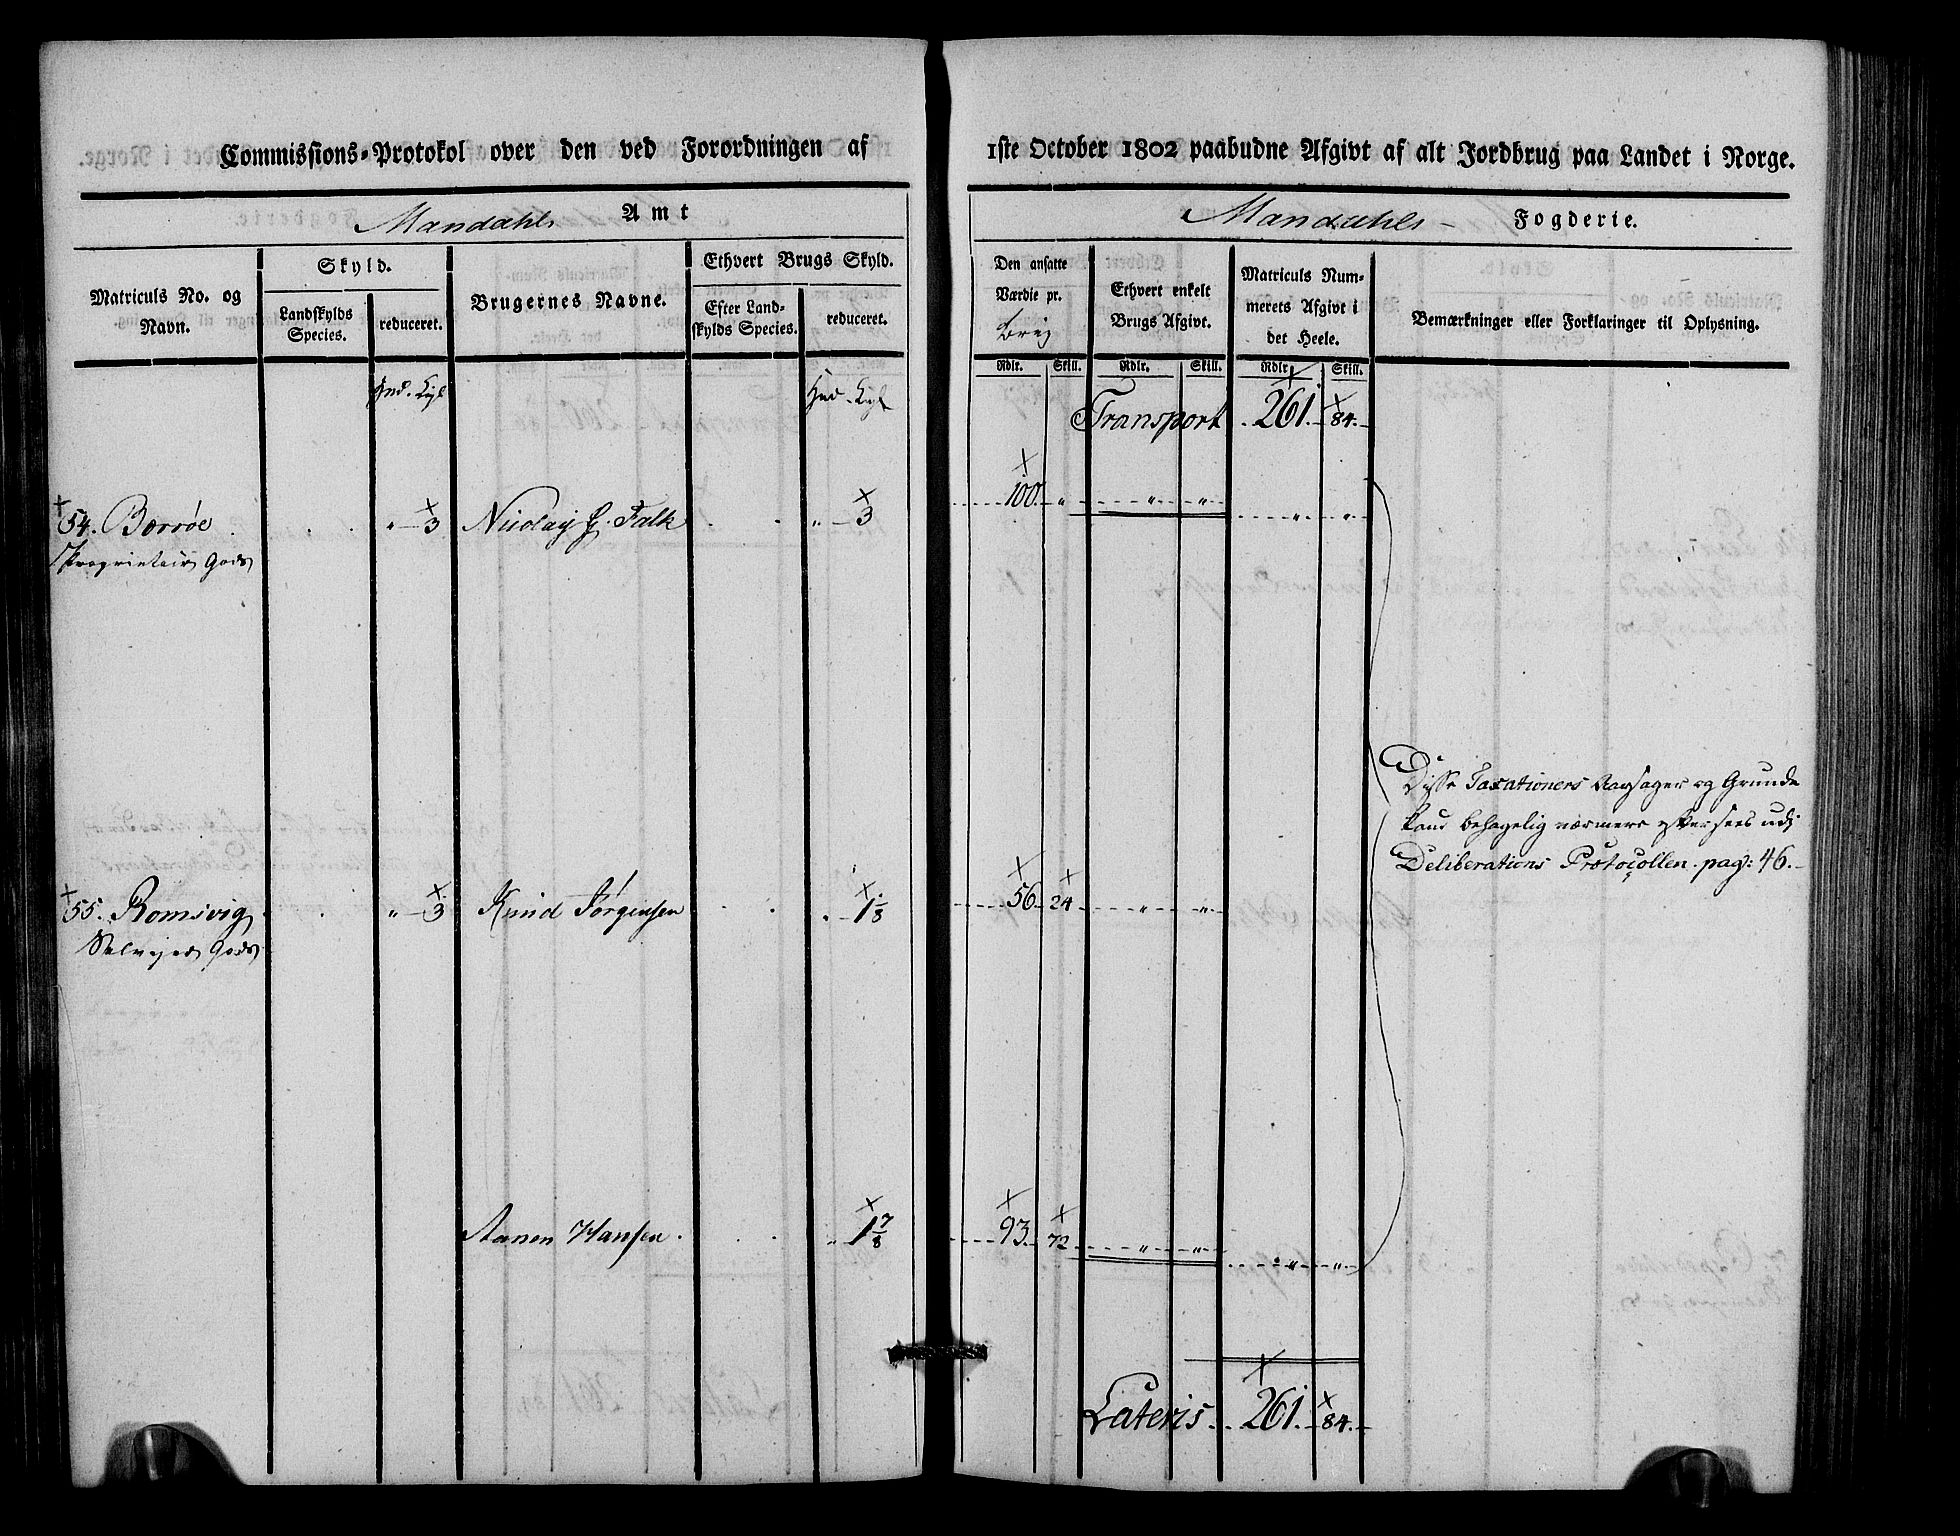 Commissions-Protokol over den ved Forordningen af 1ste October 1802 paabudne Afgivt af alt Jordbrug paa Landet i Norge.
Mandahls Amt
Mandahls Fogderie.
Matriculs No. og Navn.
Skyld.
Landskylds Species.
reduceret.
Brugernes Navne.
Ethvert Brugs Skyld.
Efter Landskylds Species.
reduceret.
Den ansatte Værdie pr.
Ethvert enkelt Brugs Afgivt.
Matriculs Nummerets Afgivt i det Heele.
Bemærkninger eller Forklaringer til Oplysning.
Rdlr. Skill. Rdlr. Skill. Rdlr. Skill.
Hud. Hud.
Transport 261. 84.
54. Borrøe " 3 Nicolay G. Falk " 3 100. " " " " "
Proprietair Gods
Disse Taxationers Aarsager og Grunde
kand behagelig nærmere eftersees udj
Deliberations Protocollen. pag: 46.
55. Romsvig " 3 Knud Jørgensen 1 1/8 56 24 " "
Selvejer Gods
Aanen Hansen 1 7/8 93 72 " " " "
Lateris 261. 84.